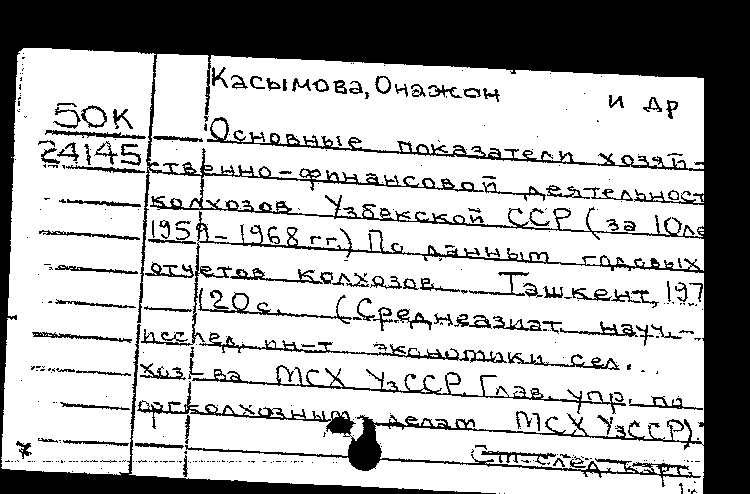 Касымова, Онажон
и др
50К
24145
Основные показатели хозяй-
ственно-финансовой деятельност
колхозов Узбекской ССР (за 10ле
1959-1968 гг.) По данным годовых
отчетов колхозов. Ташкент, 197
120 с. (Среднеазиат. науч.-
исслед. ин-т экономики сел.
хоз-ва МСХ УзССР. Глав. упр. по
оргколхозным делам МСХ УзССР).
См.след.карт.